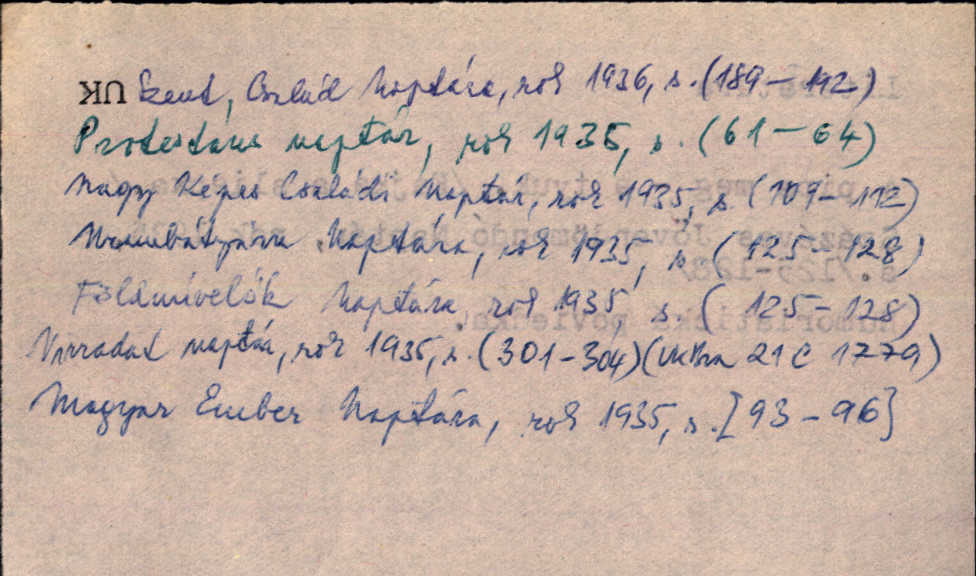 UK Szent, Család Naptára, rok 1936, s. (189-192)
Protestáns naptár, rok 1935, s. (61-64)
Nagy Képes Családi Naptár, rok 1935, s. (109-112)
Naptára, rok 1935, s. (125-128)
Földmívelők Naptára rok 1935, s. (125-128)
Virradat naptár, rok 1935, s. (301-304) (UKBra 21 C 1779)
Magyar Ember Naptára, rok 1935, s. [93-96]